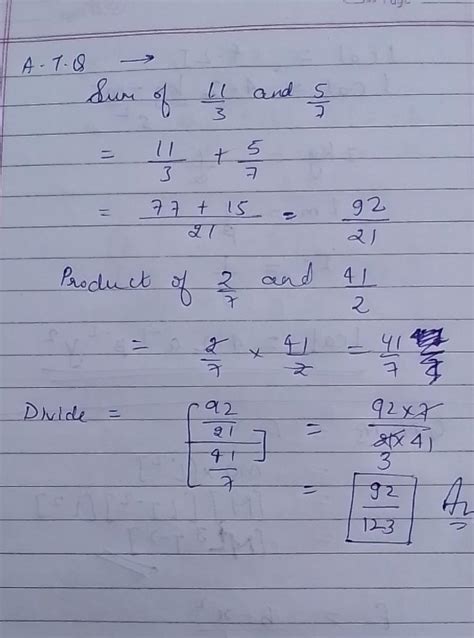 A.T.Q →
Sum of 11/3 and 5/7
= 11/3 + 5/7
= 77 + 15/21 = 92/21
Product of 2/7 and 41/2
= 2/7 × 41/2 = 41/7
Divide = [92/21 / 41/7] = 92×7/21×41
3
= 92/123 Ans